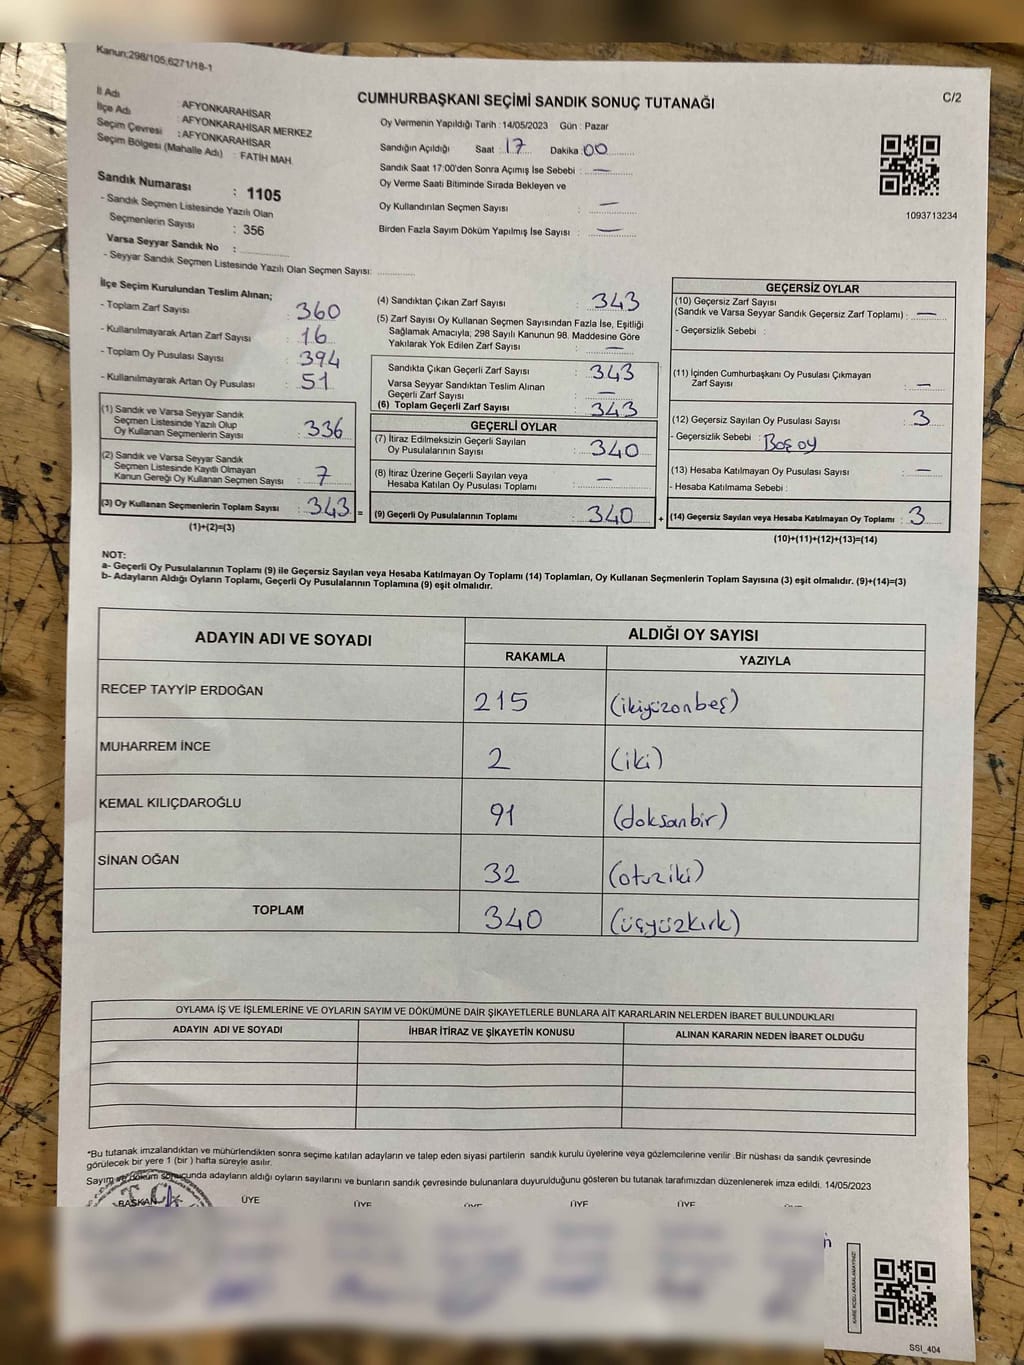 Kanun;298/105,6271/18-1
CUMHURBAŞKANI SEÇİMİ SANDIK SONUÇ TUTANAĞI
C/2
İl Adı : AFYONKARAHİSAR
İlçe Adı : AFYONKARAHİSAR MERKEZ
Seçim Çevresi : AFYONKARAHİSAR
Seçim Bölgesi (Mahalle Adı) : FATİH MAH
Sandık Numarası : 1105
- Sandık Seçmen Listesinde Yazılı Olan
Seçmenlerin Sayısı : 356
Varsa Seyyar Sandık No :
- Seyyar Sandık Seçmen Listesinde Yazılı Olan Seçmen Sayısı:
Oy Vermenin Yapıldığı Tarih : 14/05/2023 Gün : Pazar
Sandığın Açıldığı Saat : 17 Dakika : 00
Sandık Saat 17:00'den Sonra Açımış İse Sebebi : —
Oy Verme Saati Bitiminde Sırada Bekleyen ve
Oy Kullandırılan Seçmen Sayısı : —
Birden Fazla Sayım Döküm Yapılmış İse Sayısı : —
1093713234
İlçe Seçim Kurulundan Teslim Alınan;
- Toplam Zarf Sayısı : 360
- Kullanılmayarak Artan Zarf Sayısı : 16
- Toplam Oy Pusulası Sayısı : 394
- Kullanılmayarak Artan Oy Pusulası : 51
(1) Sandık ve Varsa Seyyar Sandık
Seçmen Listesinde Yazılı Olup
Oy Kullanan Seçmenlerin Sayısı : 336
(2) Sandık ve Varsa Seyyar Sandık
Seçmen Listesinde Kayıtlı Olmayan
Kanun Gereği Oy Kullanan Seçmen Sayısı : 7
(3) Oy Kullanan Seçmenlerin Toplam Sayısı : 343 =
(1)+(2)=(3)
(4) Sandıktan Çıkan Zarf Sayısı : 343
(5) Zarf Sayısı Oy Kullanan Seçmen Sayısından Fazla İse, Eşitliği
Sağlamak Amacıyla; 298 Sayılı Kanunun 98. Maddesine Göre
Yakılarak Yok Edilen Zarf Sayısı : —
Sandıkta Çıkan Geçerli Zarf Sayısı : 343
Varsa Seyyar Sandıktan Teslim Alınan
Geçerli Zarf Sayısı : —
(6) Toplam Geçerli Zarf Sayısı : 343
GEÇERLİ OYLAR
(7) İtiraz Edilmeksizin Geçerli Sayılan
Oy Pusulalarının Sayısı : 340
(8) İtiraz Üzerine Geçerli Sayılan veya
Hesaba Katılan Oy Pusulası Toplamı : —
(9) Geçerli Oy Pusulalarının Toplamı : 340 +
GEÇERSİZ OYLAR
(10) Geçersiz Zarf Sayısı
(Sandık ve Varsa Seyyar Sandık Geçersiz Zarf Toplamı) : —
- Geçersizlik Sebebi :
(11) İçinden Cumhurbaşkanı Oy Pusulası Çıkmayan
Zarf Sayısı : —
(12) Geçersiz Sayılan Oy Pusulası Sayısı : 3
- Geçersizlik Sebebi : Boş oy
(13) Hesaba Katılmayan Oy Pusulası Sayısı : —
- Hesaba Katılmama Sebebi :
(14) Geçersiz Sayılan veya Hesaba Katılmayan Oy Toplamı : 3
(10)+(11)+(12)+(13)=(14)
NOT:
a- Geçerli Oy Pusulalarının Toplamı (9) ile Geçersiz Sayılan veya Hesaba Katılmayan Oy Toplamı (14) Toplamları, Oy Kullanan Seçmenlerin Toplam Sayısına (3) eşit olmalıdır. (9)+(14)=(3)
b- Adayların Aldığı Oyların Toplamı, Geçerli Oy Pusulalarının Toplamına (9) eşit olmalıdır.
ADAYIN ADI VE SOYADI ALDIĞI OY SAYISI
RAKAMLA YAZIYLA
RECEP TAYYİP ERDOĞAN 215 (ikiyüzonbeş)
MUHARREM İNCE 2 (iki)
KEMAL KILIÇDAROĞLU 91 (doksanbir)
SİNAN OĞAN 32 (otuziki)
TOPLAM 340 (üçyüzkırk)
OYLAMA İŞ VE İŞLEMLERİNE VE OYLARIN SAYIM VE DÖKÜMÜNE DAİR ŞİKAYETLERLE BUNLARA AİT KARARLARIN NELERDEN İBARET BULUNDUKLARI
ADAYIN ADI VE SOYADI İHBAR İTİRAZ VE ŞİKAYETİN KONUSU ALINAN KARARIN NEDEN İBARET OLDUĞU
*Bu tutanak imzalandıktan ve mühürlendikten sonra seçime katılan adayların ve talep eden siyasi partilerin sandık kurulu üyelerine veya gözlemcilerine verilir .Bir nüshası da sandık çevresinde
görülecek bir yere 1 (bir ) hafta süreyle asılır.
Sayım ve döküm sonucunda adayların aldığı oyların sayılarını ve bunların sandık çevresinde bulunanlara duyurulduğunu gösteren bu tutanak tarafımızdan düzenlenerek imza edildi. 14/05/2023
BAŞKAN ÜYE ÜYE ÜYE ÜYE ÜYE ÜYE
SSI_404